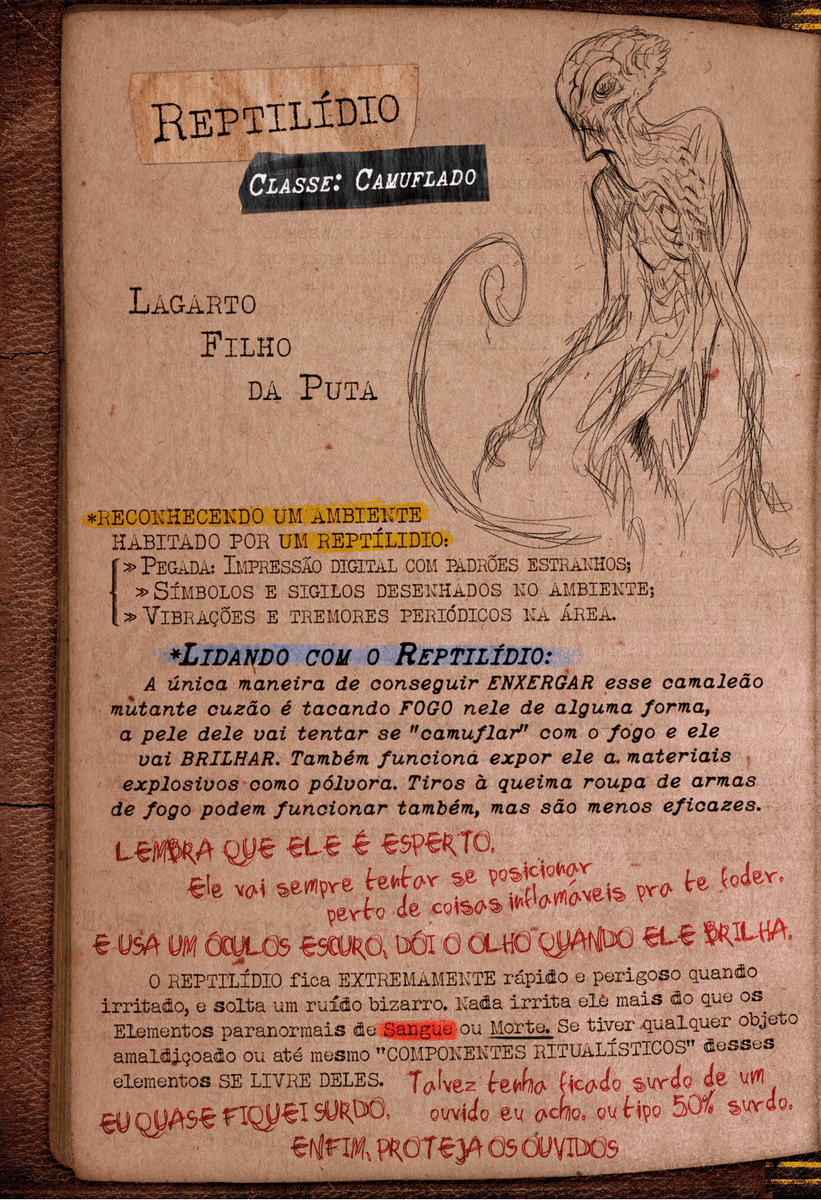 Reptilídio
Classe: Camuflado
Lagarto
Filho
da Puta
*RECONHECENDO UM AMBIENTE
HABITADO POR UM REPTÍLIDIO:
» Pegada: Impressão digital com padrões estranhos;
» Símbolos e sigilos desenhados no ambiente;
» Vibrações e tremores periódicos na área.
*Lidando com o Reptilídio:
A única maneira de conseguir ENXERGAR esse camaleão
mutante cuzão é tacando FOGO nele de alguma forma,
a pele dele vai tentar se "camuflar" com o fogo e ele
vai BRILHAR. Também funciona expor ele a materiais
explosivos como pólvora. Tiros à queima roupa de armas
de fogo podem funcionar também, mas são menos eficazes.
LEMBRA QUE ELE É ESPERTO.
Ele vai sempre tentar se posicionar
perto de coisas inflamáveis pra te foder.
E USA UM ÓCULOS ESCURO, DÓI O OLHO QUANDO ELE BRILHA.
O REPTILÍDIO fica EXTREMAMENTE rápido e perigoso quando
irritado, e solta um ruído bizarro. Nada irrita ele mais do que os
Elementos paranormais de Sangue ou Morte. Se tiver qualquer objeto
amaldiçoado ou até mesmo "COMPONENTES RITUALÍSTICOS" desses
elementos SE LIVRE DELES.
EU QUASE FIQUEI SURDO.
Talvez tenha ficado surdo de um
ouvido eu acho. ou tipo 50% surdo.
ENFIM, PROTEJA OS OUVIDOS